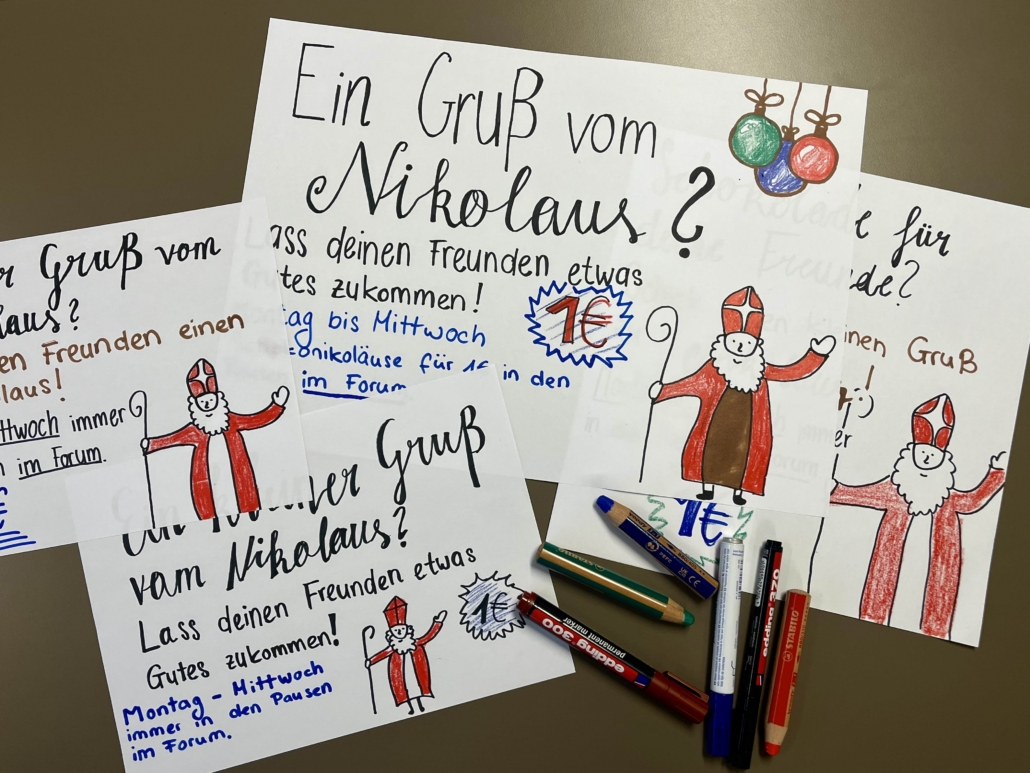 Ein Gruß vom
Nikolaus?
ass deinen Freunden etwas
tes zukommen!
ag bis Mittwoch
onikoläuse für 1€ in den
im Forum
1€
r Gruß vom
laus?
en Freunden einen
laus!
ttwoch immer
im Forum.
€
für
de?
inen Gruß
!
:)
er
1€
Ein kleiner Gruß
vom Nikolaus?
Lass deinen Freunden etwas
Gutes zukommen!
1€
Montag - Mittwoch
immer in den Pausen
im Forum.
edding 300
permanent marker
edding 370
STABILO